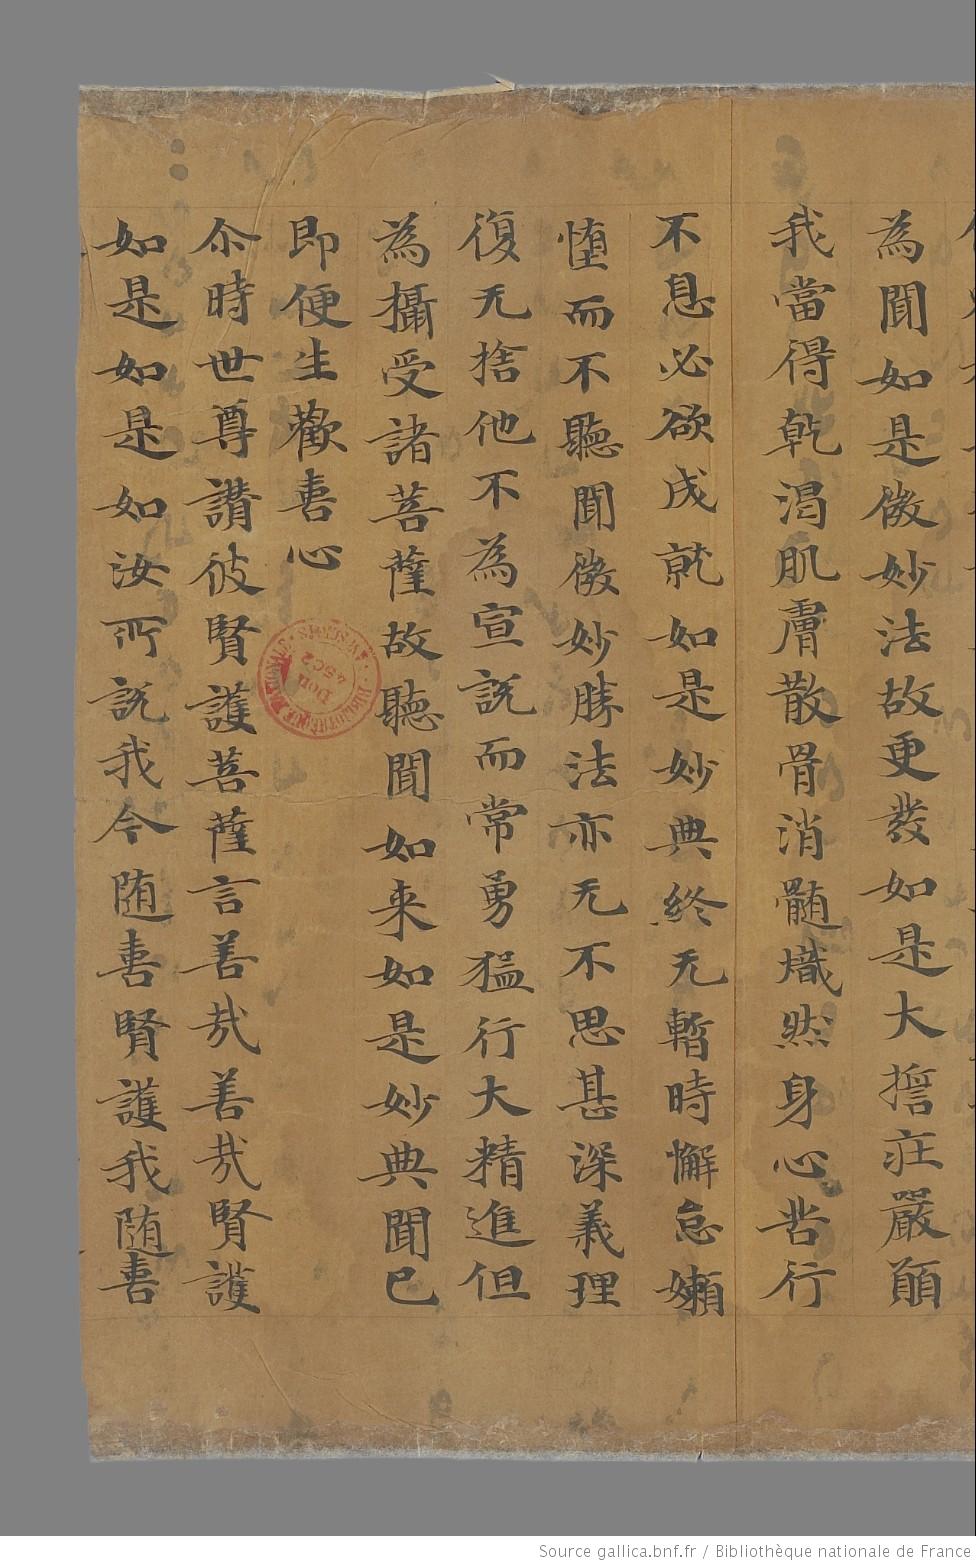 為聞如是微妙法故更發如是大擔莊嚴願
我當得乾渴肌膚散骨消髓熾然身心苦行
不息必欲成就如是妙典終无暫時懈怠嬾
憧而不聽聞微妙勝法亦无不思甚深義理
復无捨他不為宣說而常勇猛行大精進但
為攝受諸菩薩故聽聞如来如是妙典聞已
即便生歡喜心
尒時世尊讚彼賢護菩薩言善哉善哉賢護
如是如是如汝所說我今随喜賢護我随喜
BIBLIOTHÈQUE NATIONALE MANUSCRITS
DON
4502
Source gallica.bnf.fr / Bibliothèque nationale de France